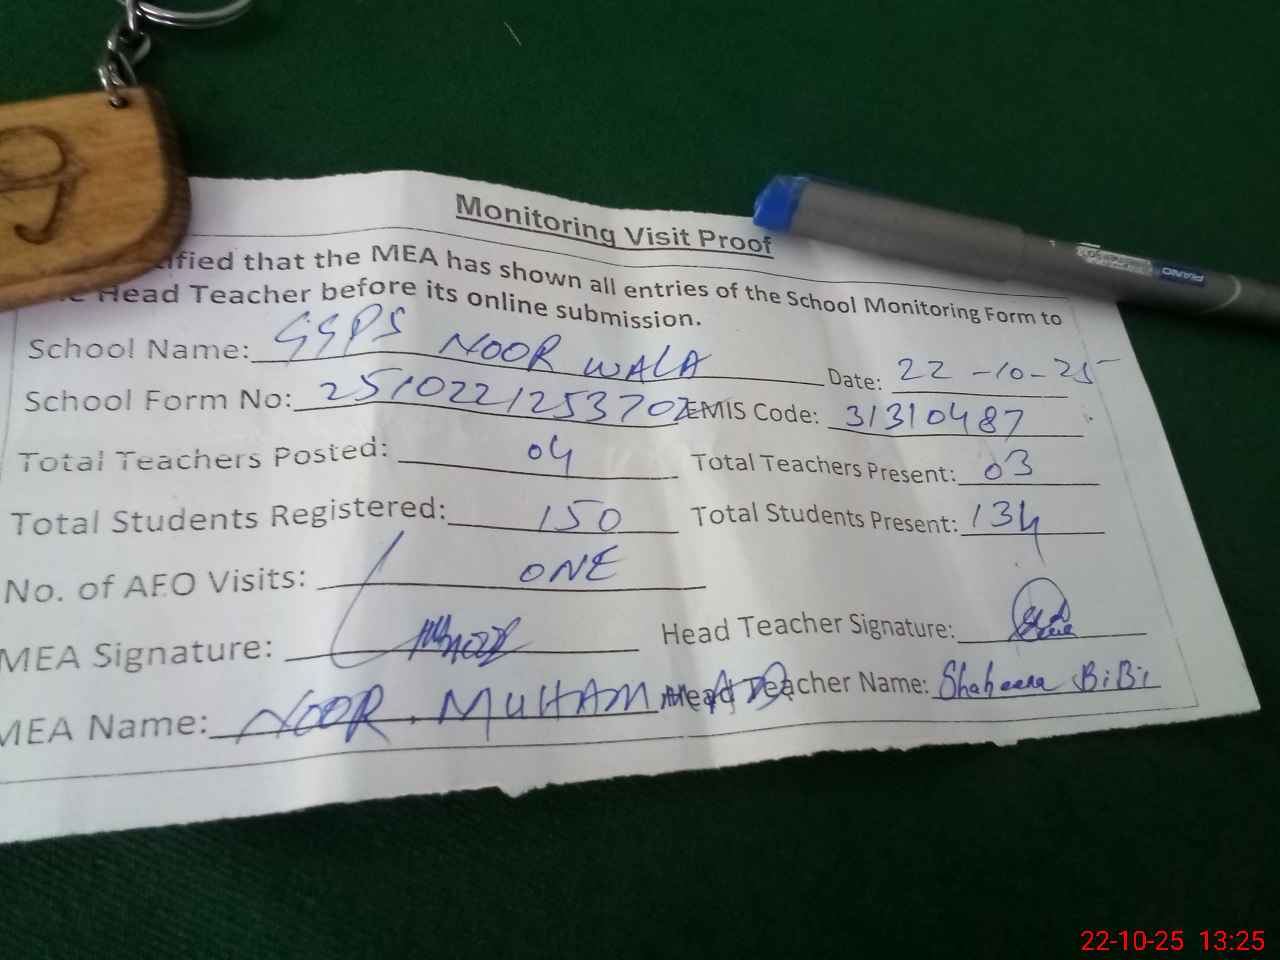 Monitoring Visit Proof
that the MEA has shown all entries of the School Monitoring Form to
Head Teacher before its online submission.
School Name: GGPS NOOR WALA Date: 22-10-25
School Form No: EMIS Code: 31310487
Total Teachers Posted: 04 Total Teachers Present: 03
Total Students Registered: 150 Total Students Present: 134
No. of AEO Visits: ONE
MEA Signature: Head Teacher Signature:
MEA Name: NOOR. MUHAMMAD Head Teacher Name: BiBi
PIANO
22-10-25 13:25